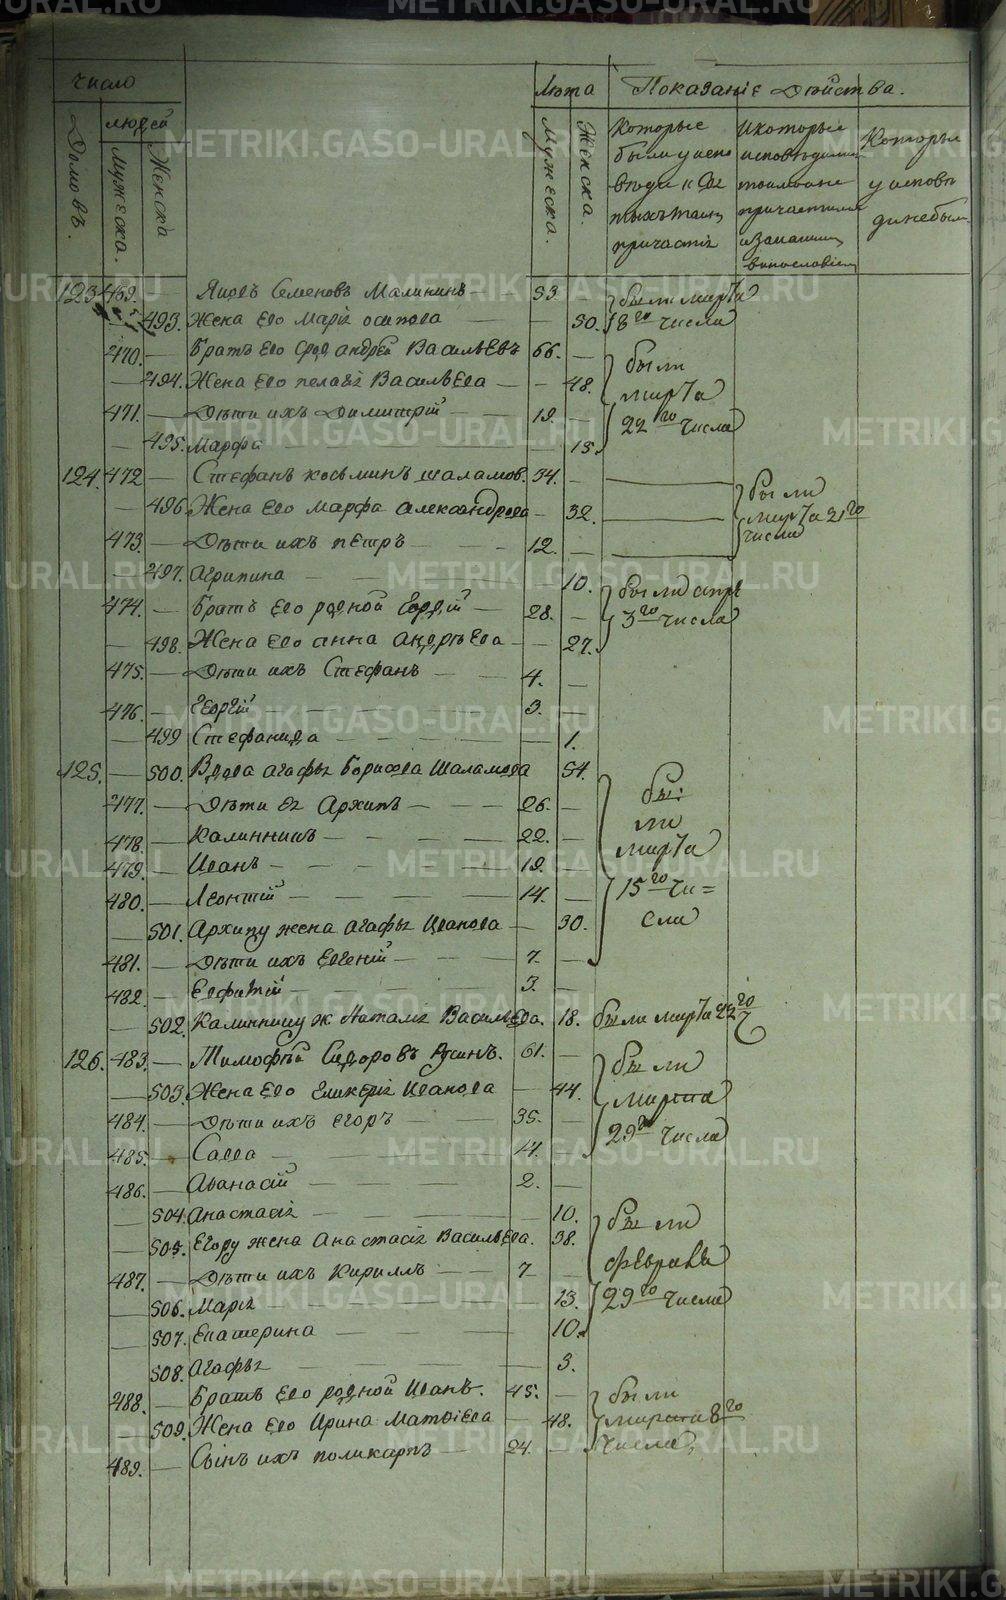 Число
Людей
Домовъ.
Мужеска.
Женска
Лѣта
Мужеска.
Женска.
Показаніе Дѣйства.
Которые
были у испо
вѣди и Свя
тыхъ таин
причастія
И которые
исповѣдали
токмо а не
причастили
и за каким
винословіем
Которые
у исповѣ
ди не были
123 469. — Яковъ Семеновъ Малининъ — 53. — были марта
— 493. Жена Его Марія Осипова — 50. 18го числа
470. — Братъ Его срод Андрей Васильевъ 66. — были
— 494. Жена Его Пелагія Васильева — — 48. марта
471. — Дѣти ихъ Димитрій — 19. — 22го числа
— 495. Марфа — 15.
124. 472 — Стефанъ Косьминъ Шаламов. 34. — были
— 496. Жена Его Марфа Александрова — 32. марта 21го
473. — Дѣти ихъ Петръ — 12. — числа
— 497. Агрипина — 10. были апре
474. — Братъ Его родной Гордій — 28. — 3го числа
— 498. Жена Его Анна Андрѣева — 27.
475. — Дѣти ихъ Стефанъ — 4. —
476. — Георгій — 3. —
— 499 Стефанида — 1.
125. — 500. Вдова Агафья Борисова Шаламова 54. бы:
477. — Дѣти Ея Архипъ — 26. — ли
478. — Калинникъ — 22. — марта
479. — Иванъ — 19. —
480. — Леонтій — 14. — 15го чи=
— 501. Архипу жена Агафья Иванова — 30. сла
481. — Дѣти ихъ Евгеній — 7. —
482. — Евфимій — 3. —
— 502. Калиннику ж Наталія Васильева. 18. были марта 22го ч
126. 483. — Тимофѣй Сидоровъ Русинъ. 61. — были
— 503. Жена Его Гликерія Иванова — 44. марта
484. — Дѣти ихъ Егоръ — 35. — 29го числа
485. — Савва — 14. —
486. — Аѳанасій — 2. —
— 504. Анастасія — 10. были
— 505. Егору жена Анастасія Васильева. 38. февраля
487. — Дѣти ихъ Кириллъ — 7 — 29го числа
— 506. Марія — 13.
— 507. Екатерина — 10.
— 508. Агафья — 3.
488. — Братъ Его родной Иванъ. 45. — были
— 509. Жена Его Ирина Матвіева — 48. марта 8го
489. — Сынъ ихъ Поликарпъ — 24. — числа,